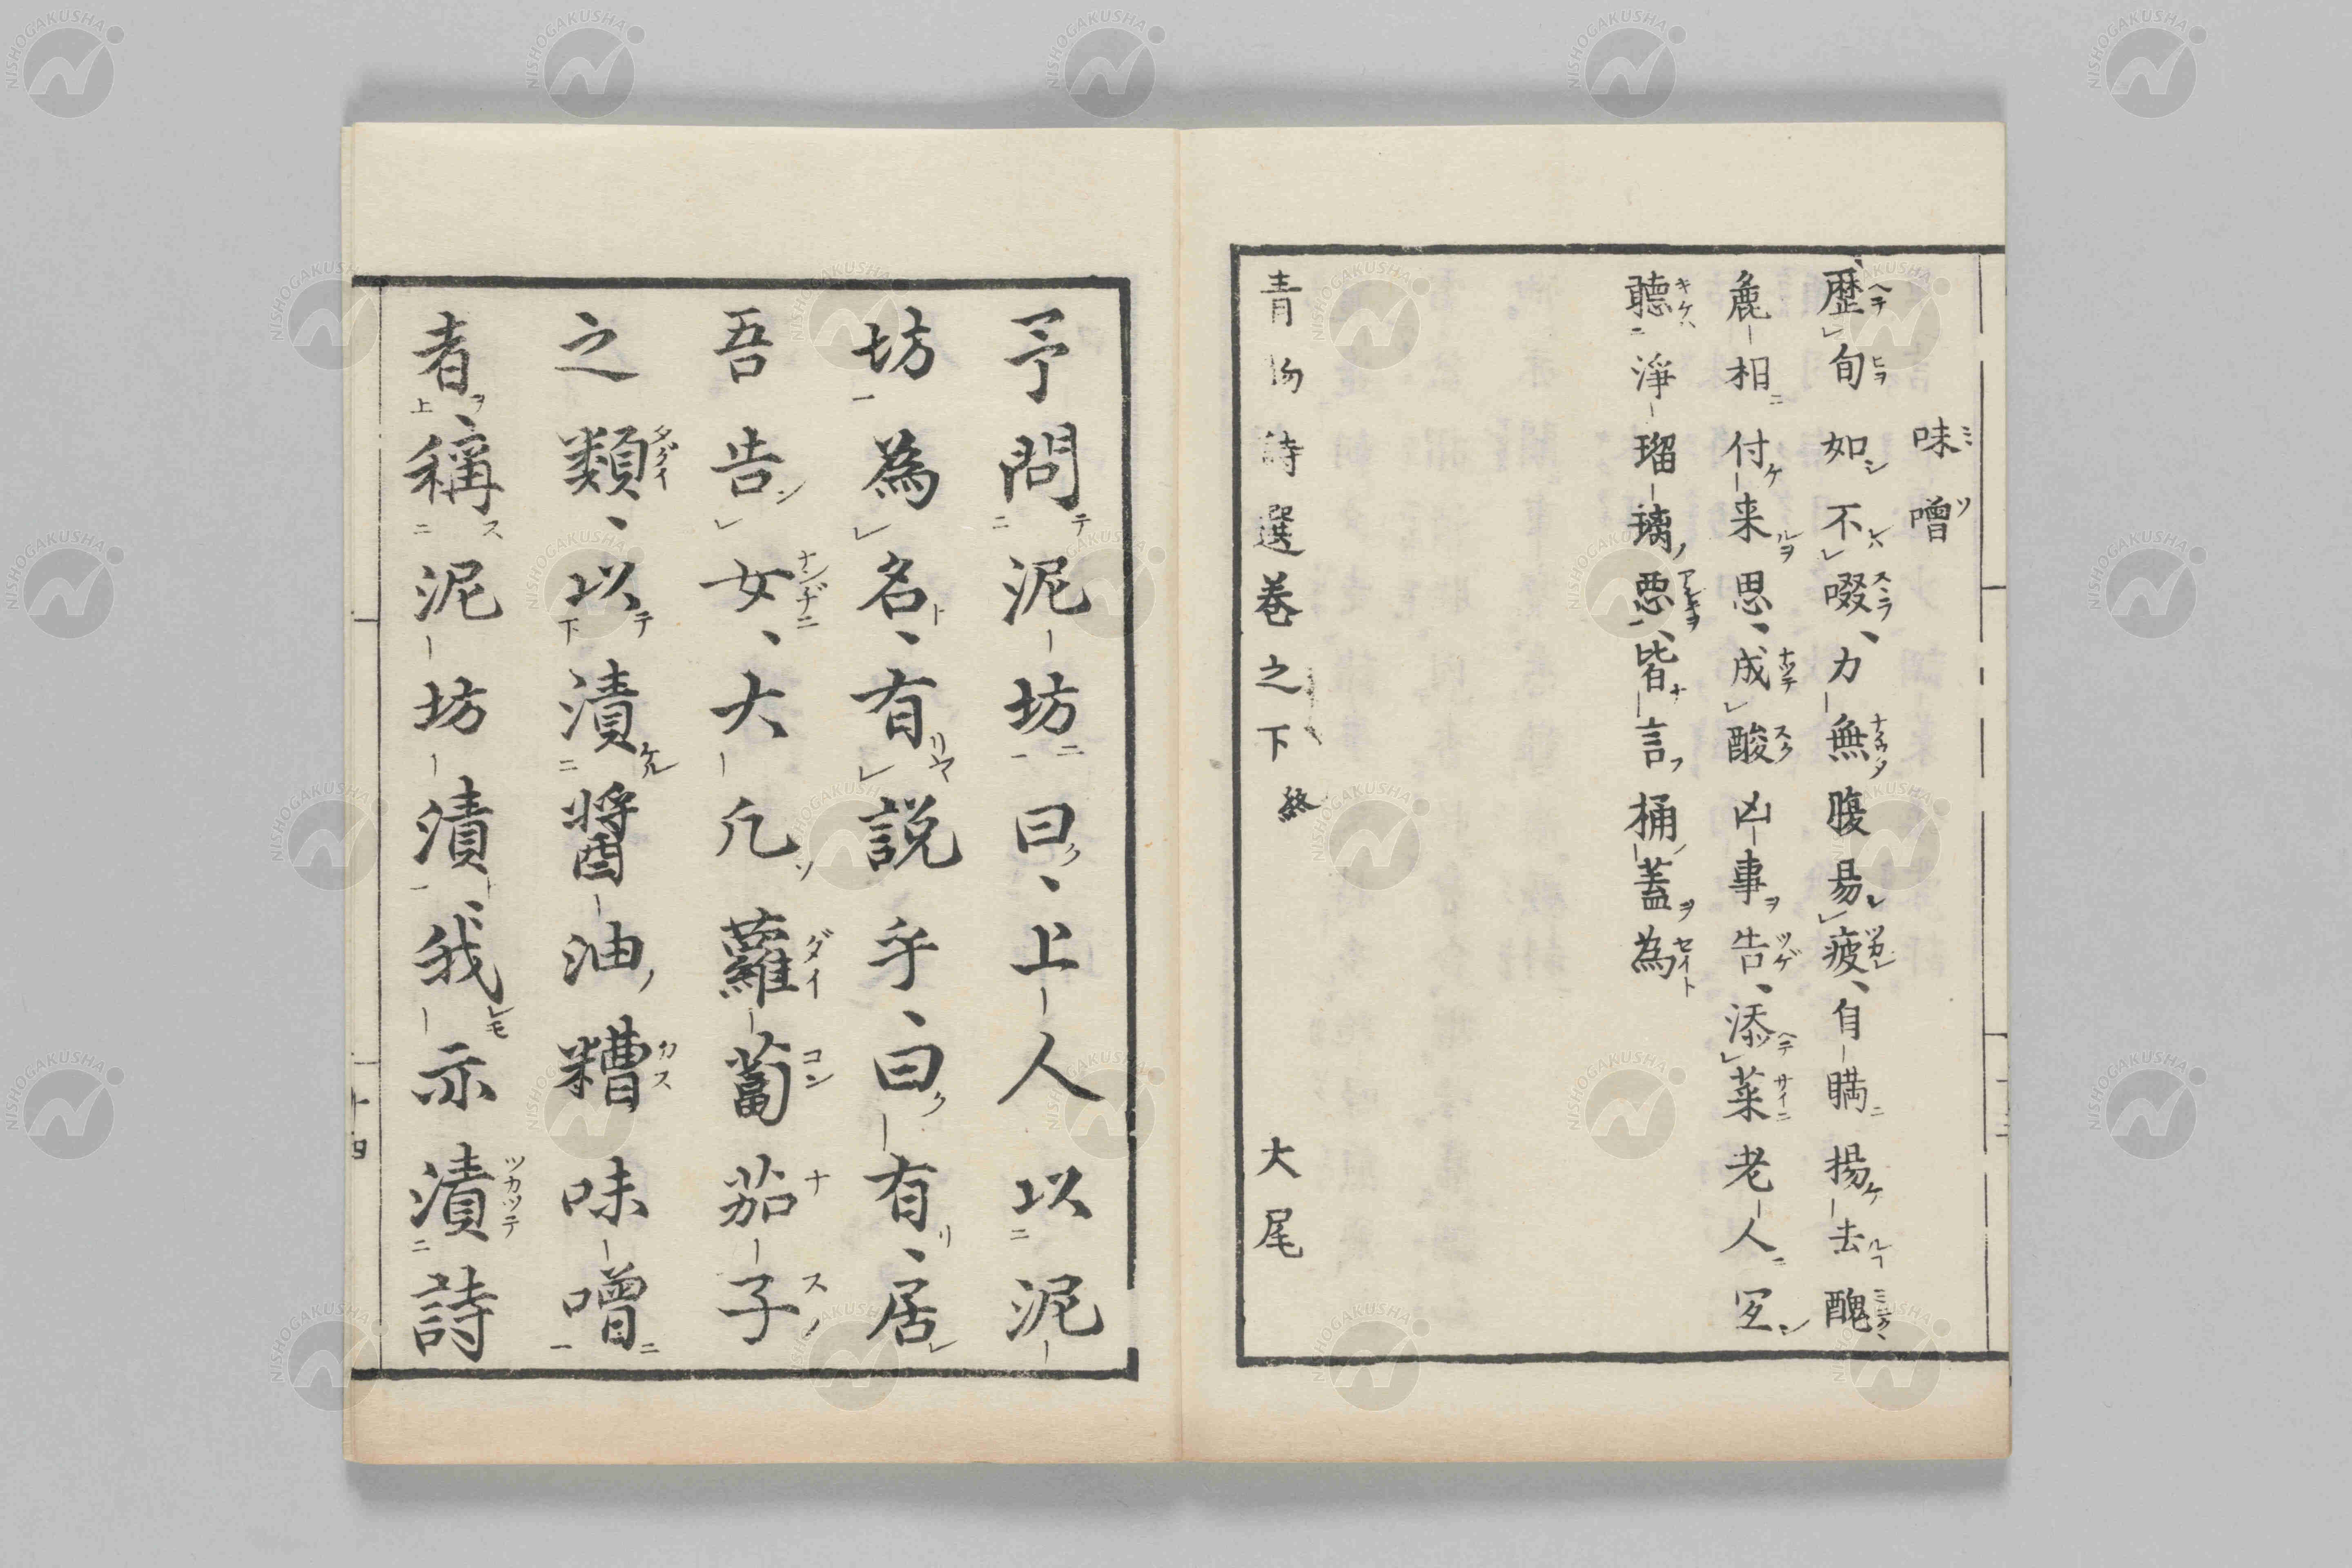 味噌
歴旬如不啜、力無腹易疲、自瞞揚去醜
麁相付来思、成酸凶事告、添菜老人
聴淨瑠璃悪、皆言桶蓋為
青物詩選巻之下終 大尾
予問泥坊曰、上人以泥
坊為名、有説乎、曰有、居
吾告女、大凡蘿蔔茄子
之類、以漬醤油糟味噌
者、稱泥坊漬、我示漬詩
十四
NISHOGAKUSHA